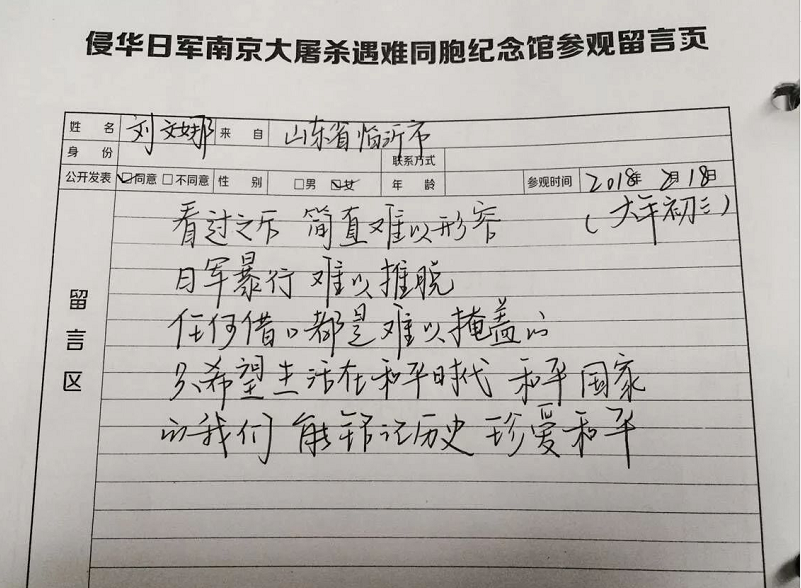 侵华日军南京大屠杀遇难同胞纪念馆参观留言页
姓 名 刘文娜 来 自 山东省临沂市
身 份 联系方式
公开发表 ☑同意 □不同意 性 别 □男 ☑女 年 龄 参观时间 2018年 2月 18日
(大年初三)
留言区
看过之后 简直难以形容
日军暴行 难以推脱
任何借口都是难以掩盖的
只希望生活在和平时代 和平国家
的我们 能铭记历史 珍爱和平